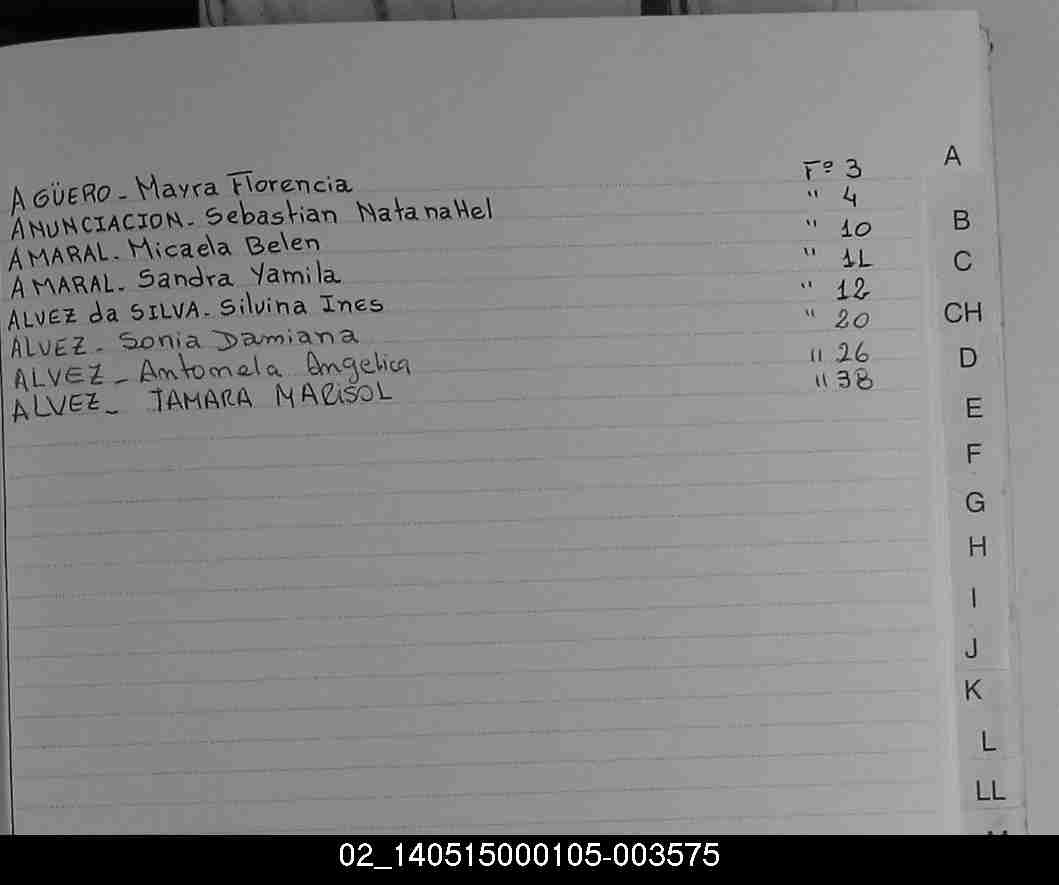 A
AGÜERO - Mayra Florencia Fº 3
ANUNCIACION - Sebastian Natanahel " 4
AMARAL - Micaela Belen " 10
AMARAL - Sandra Yamila " 11
ALVEZ da SILVA - Silvina Ines " 12
ALVEZ - Sonia Damiana " 20
ALVEZ - Antonela Angelica " 26
ALVEZ - TAMARA MARiSOL " 38
B
C
CH
D
E
F
G
H
I
J
K
L
LL
02_140515000105-003575